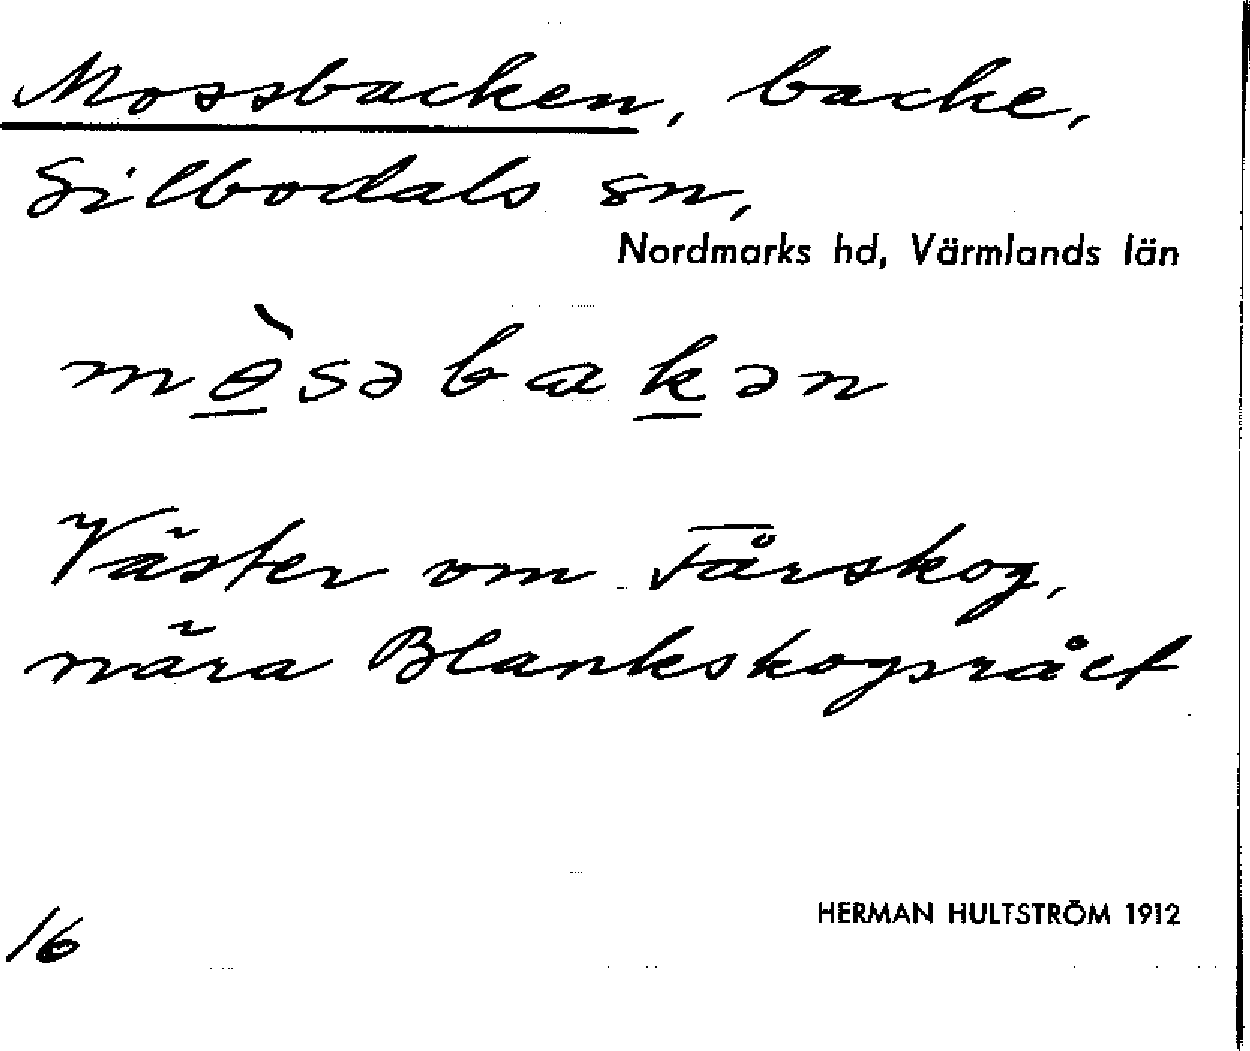 Mossbacken, backe,
Silbodals sn,
Nordmarks hd, Värmlands län
mɵ̀səbakən
Väster om Fårskog,
nära Blankskogsrået
16
HERMAN HULTSTRÖM 1912